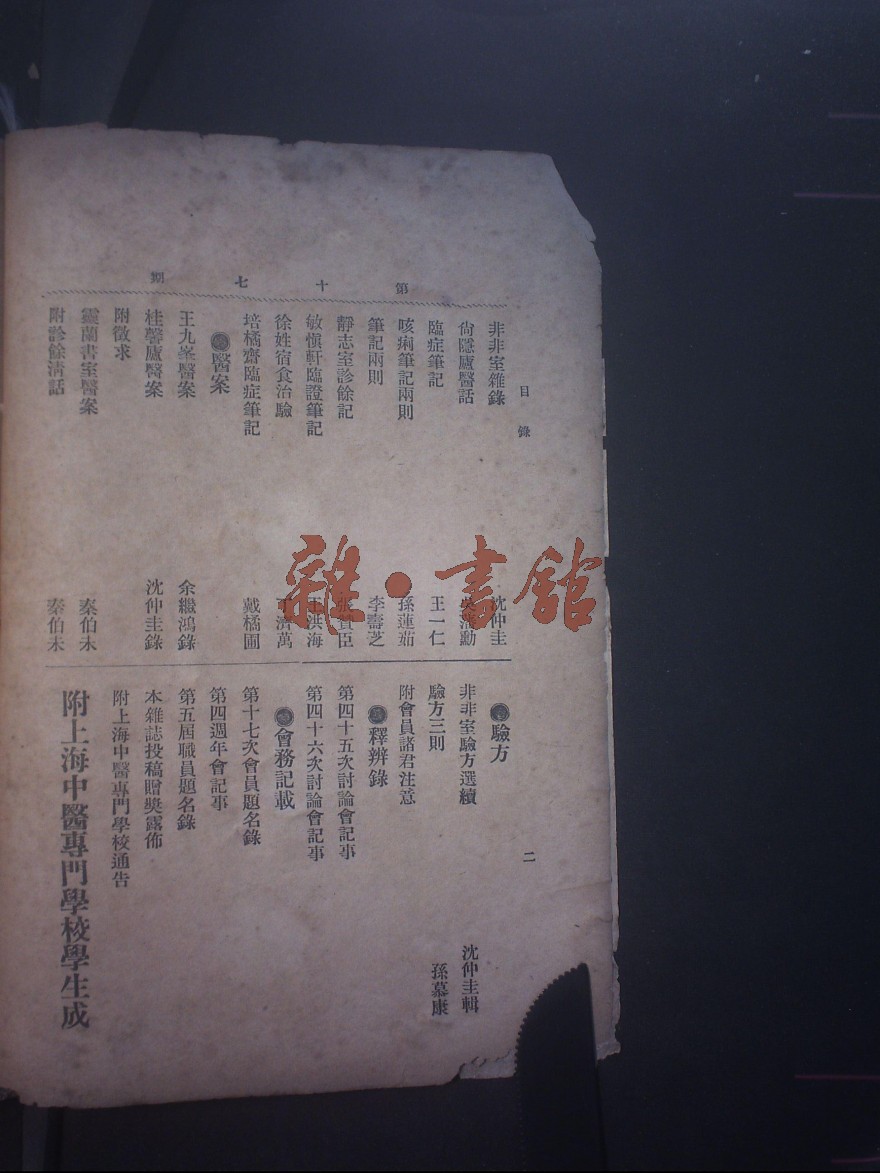 目錄
二
第十七期
非非室雜錄 沈仲圭
尙隱廬醫話
臨症筆記 王一仁
咳痢筆記兩則 孫蓮茹
筆記兩則 李壽芝
靜志室診餘記 張贊臣
敏愼軒臨證筆記 王洪海
徐姓宿食治驗 丁濟萬
培橘齋臨症筆記 戴橘圃
醫案
王九峯醫案 余繼鴻錄
桂馨廬醫案 沈仲圭錄
附徵求
靈蘭書室醫案 秦伯未
附診餘淸話 秦伯未
驗方
非非室驗方選續 沈仲圭輯
驗方三則 孫慕康
附會員諸君注意
釋辨錄
第四十五次討論會記事
第四十六次討論會記事
會務記載
第十七次會員題名錄
第四週年會記事
第五屆職員題名錄
本雜誌投稿贈獎露佈
附上海中醫專門學校通告
附上海中醫專門學校學生成
雜·書館